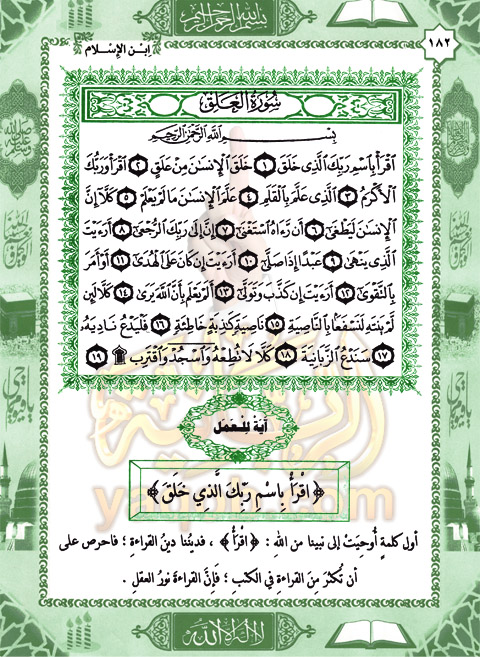 بسم الله الرحمن الرحيم
١٨٢
ابن الإسلام
سُورَةُ العَلَقِ
بِسْمِ اللَّهِ الرَّحْمَٰنِ الرَّحِيمِ
اقْرَأْ بِاسْمِ رَبِّكَ الَّذِي خَلَقَ ١ خَلَقَ الْإِنسَانَ مِنْ عَلَقٍ ٢ اقْرَأْ وَرَبُّكَ
الْأَكْرَمُ ٣ الَّذِي عَلَّمَ بِالْقَلَمِ ٤ عَلَّمَ الْإِنسَانَ مَا لَمْ يَعْلَمْ ٥ كَلَّا إِنَّ
الْإِنسَانَ لَيَطْغَىٰ ٦ أَن رَّءَاهُ اسْتَغْنَىٰ ٧ إِنَّ إِلَىٰ رَبِّكَ الرُّجْعَىٰ ٨ أَرَءَيْتَ
الَّذِي يَنْهَىٰ ٩ عَبْدًا إِذَا صَلَّىٰ ١٠ أَرَءَيْتَ إِن كَانَ عَلَى الْهُدَىٰ ١١ أَوْ أَمَرَ
بِالتَّقْوَىٰ ١٢ أَرَءَيْتَ إِن كَذَّبَ وَتَوَلَّىٰ ١٣ أَلَمْ يَعْلَم بِأَنَّ اللَّهَ يَرَىٰ ١٤ كَلَّا لَئِن
لَّمْ يَنتَهِ لَنَسْفَعًا بِالنَّاصِيَةِ ١٥ نَاصِيَةٍ كَاذِبَةٍ خَاطِئَةٍ ١٦ فَلْيَدْعُ نَادِيَهُ
١٧ سَنَدْعُ الزَّبَانِيَةَ ١٨ كَلَّا لَا تُطِعْهُ وَاسْجُدْ وَاقْتَرِب ۩ ١٩
آيَةٌ لِلْعَمَلِ
﴿ اقْرَأْ بِاسْمِ رَبِّكَ الَّذِي خَلَقَ ﴾
أول كلمةٍ أُوحِيَتْ إلى نبينا من اللهِ : ﴿ اقْرَأْ ﴾ ، فديننا دينُ القراءةِ ؛ فاحرص على
أن تُكثرَ مِنَ القراءةِ في الكتبِ ؛ فَإِنَّ القراءةَ نورُ العقلِ .
لا إله إلا الله